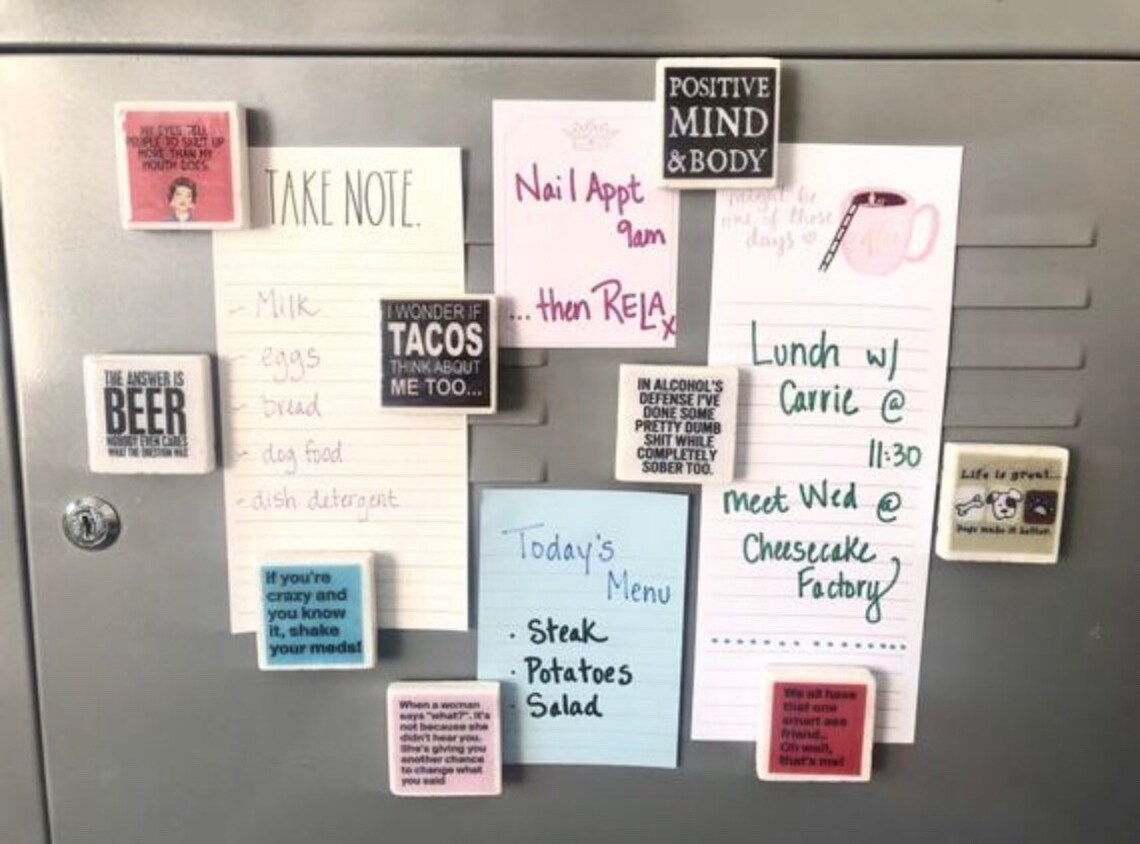 MY EYES TELL
PEOPLE TO SHUT UP
MORE THAN MY
MOUTH DOES.
TAKE NOTE.
- Milk
- eggs
- bread
- dog food
- dish detergent
I WONDER IF
TACOS
THINK ABOUT
ME TOO...
THE ANSWER IS
BEER
NOBODY EVEN CARES
WHAT THE QUESTION WAS
if you're
crazy and
you know
it, shake
your meds!
Nail Appt
9am
...then RELAx
POSITIVE
MIND
& BODY
might be
one of those
days
coffee
Lunch w/
Carrie @
11:30
meet Wed @
Cheesecake
Factory
IN ALCOHOL'S
DEFENSE I'VE
DONE SOME
PRETTY DUMB
SHIT WHILE
COMPLETELY
SOBER TOO.
Life is great...
Dogs make it better.
Today's
Menu
· Steak
· Potatoes
· Salad
When a woman
says "what?". It's
not because she
didn't hear you.
She's giving you
another chance
to change what
you said
We all have
that one
smart ass
friend...
Oh wait,
that's me!